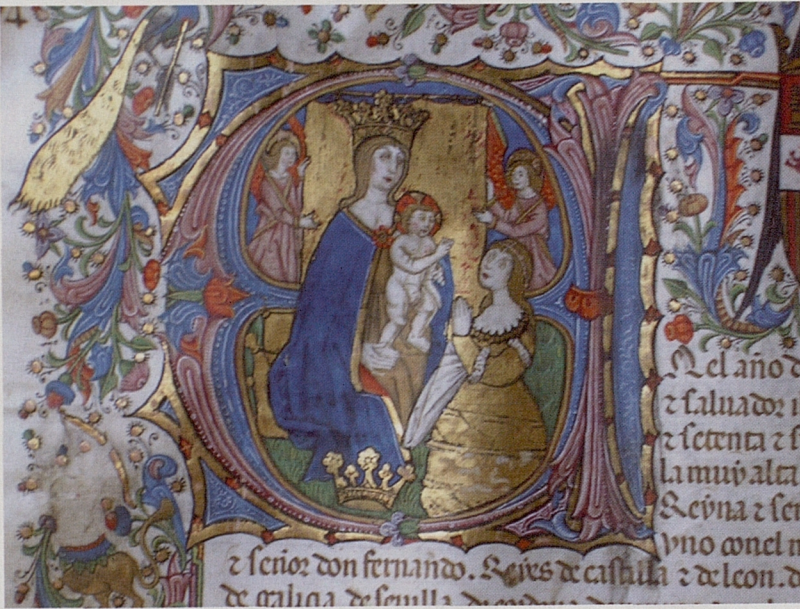 E
N el año d
⁊ saluador
⁊ setenta ⁊ s
la muy alta
Reyna ⁊ señ
vno conel m
⁊ señor don fernando. Reyes de castilla ⁊ de leon. d
de galiçia de seuilla